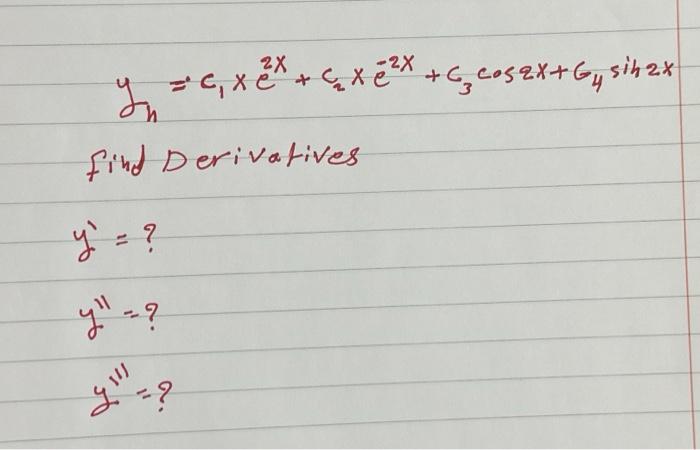 yₕ = c₁ x e^2x + c₂ x e^-2x + c₃ cos2x + c₄ sin2x
find Derivatives
y' = ?
y'' = ?
y''' = ?